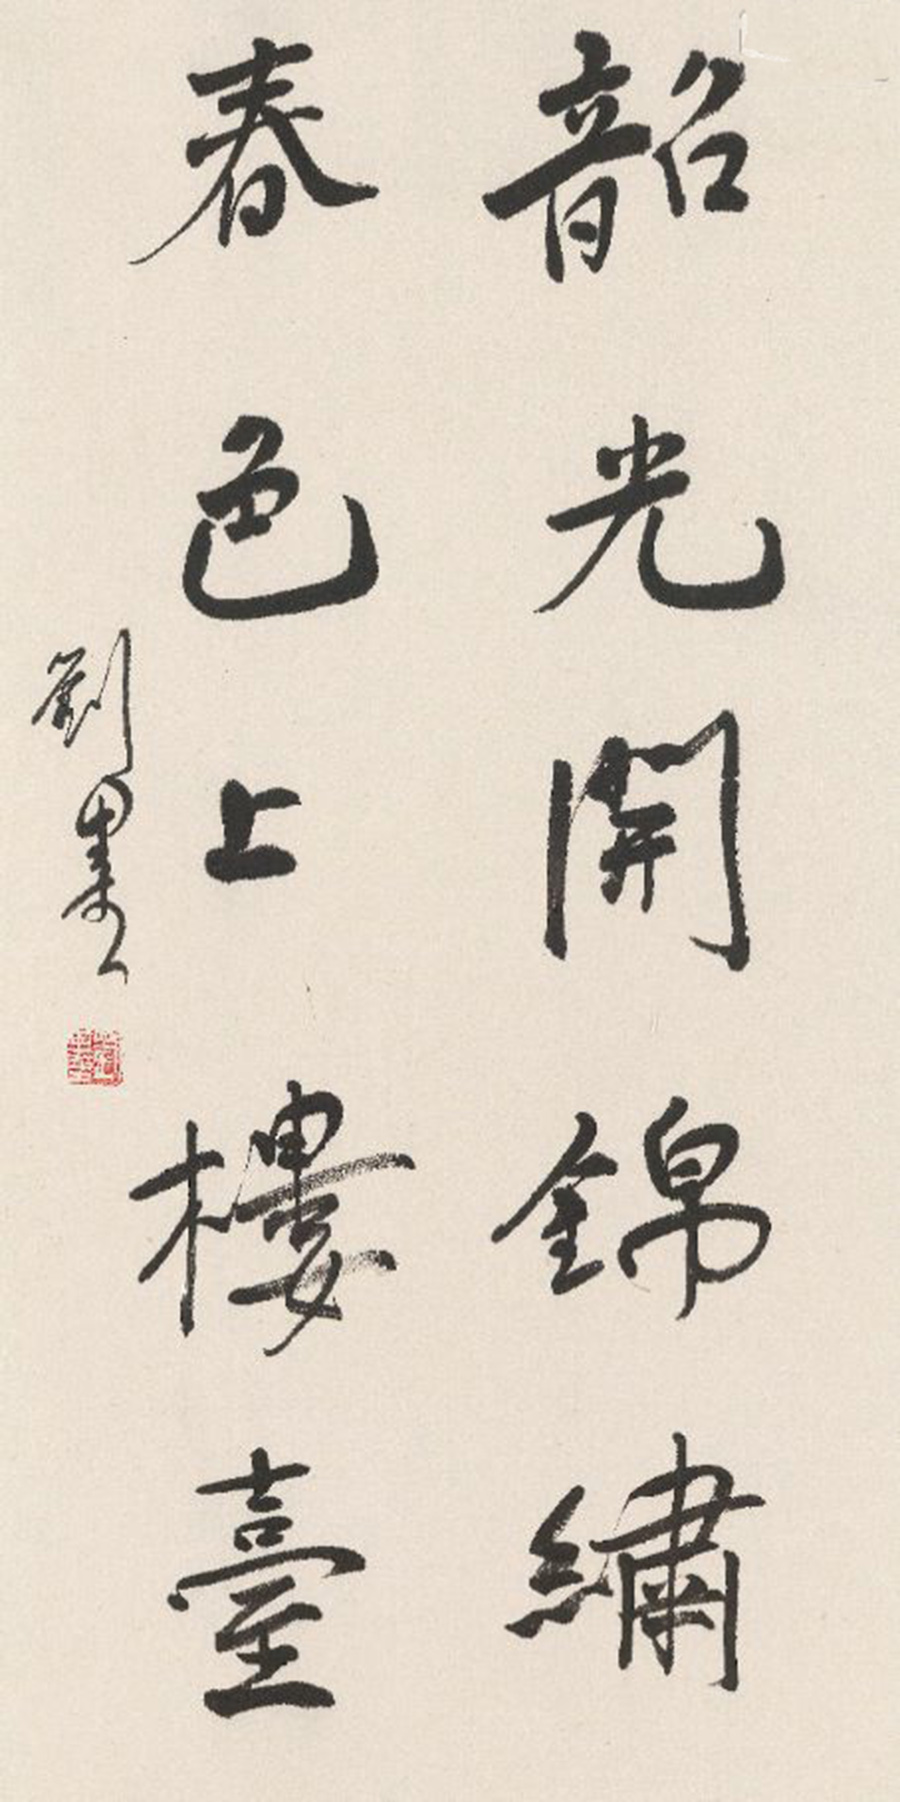 韶光開錦繡
春色上樓臺
劉墨